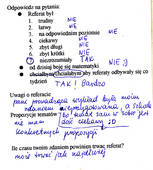 Odpowiedz na pytania:
● Referat był
1. trudny NIE
2. łatwy NIE
3. na odpowiednim poziomie NIE
4. ciekawy NIE
5. zbyt długi NIE
6. zbyt krótki NIE
7. niezrozumiały TAK
● od dzisiaj boję się matematyki NIE ;)
● chciałbym/chciałabym aby referaty odbywały się tydzień TAK! Bardzo
Uwagi o referacie
pani prowadząca wykład była moim zdaniem
Propozycje tematów
dość ciekawy :)
konkretnych propozycji
Ile czasu twoim zdaniem powinien trwać referat?
może trwać jak najdłużej